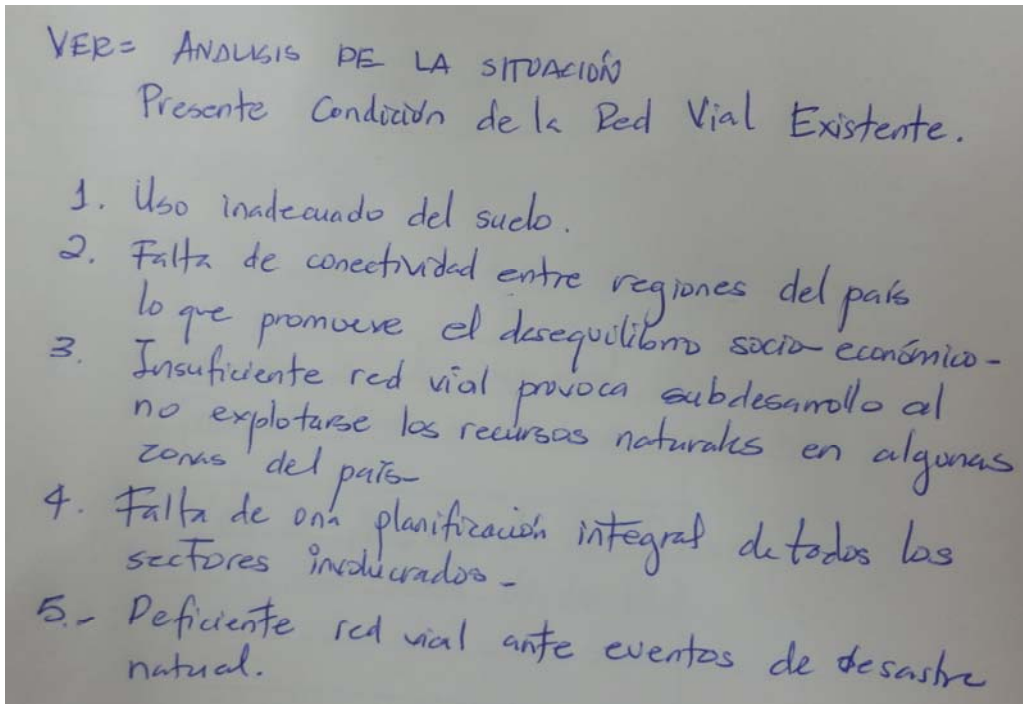 VER= ANALISIS DE LA SITUACIÓN
Presente Condición de la Red Vial Existente.
1. Uso inadecuado del suelo.
2. Falta de conectividad entre regiones del país
lo que promueve el desequilibrio socio-económico-
3. Insuficiente red vial provoca subdesarrollo al
no explotarse los recursos naturales en algunas
zonas del país-
4. Falta de una planificación integral de todos los
sectores involucrados-
5.- Deficiente red vial ante eventos de desastre
natural.